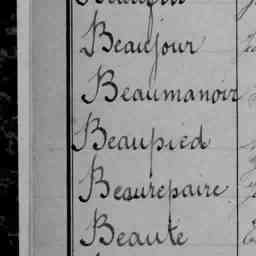 Beaujour
Beaumanoir
Beaupied
Beaurepaire
Beauté